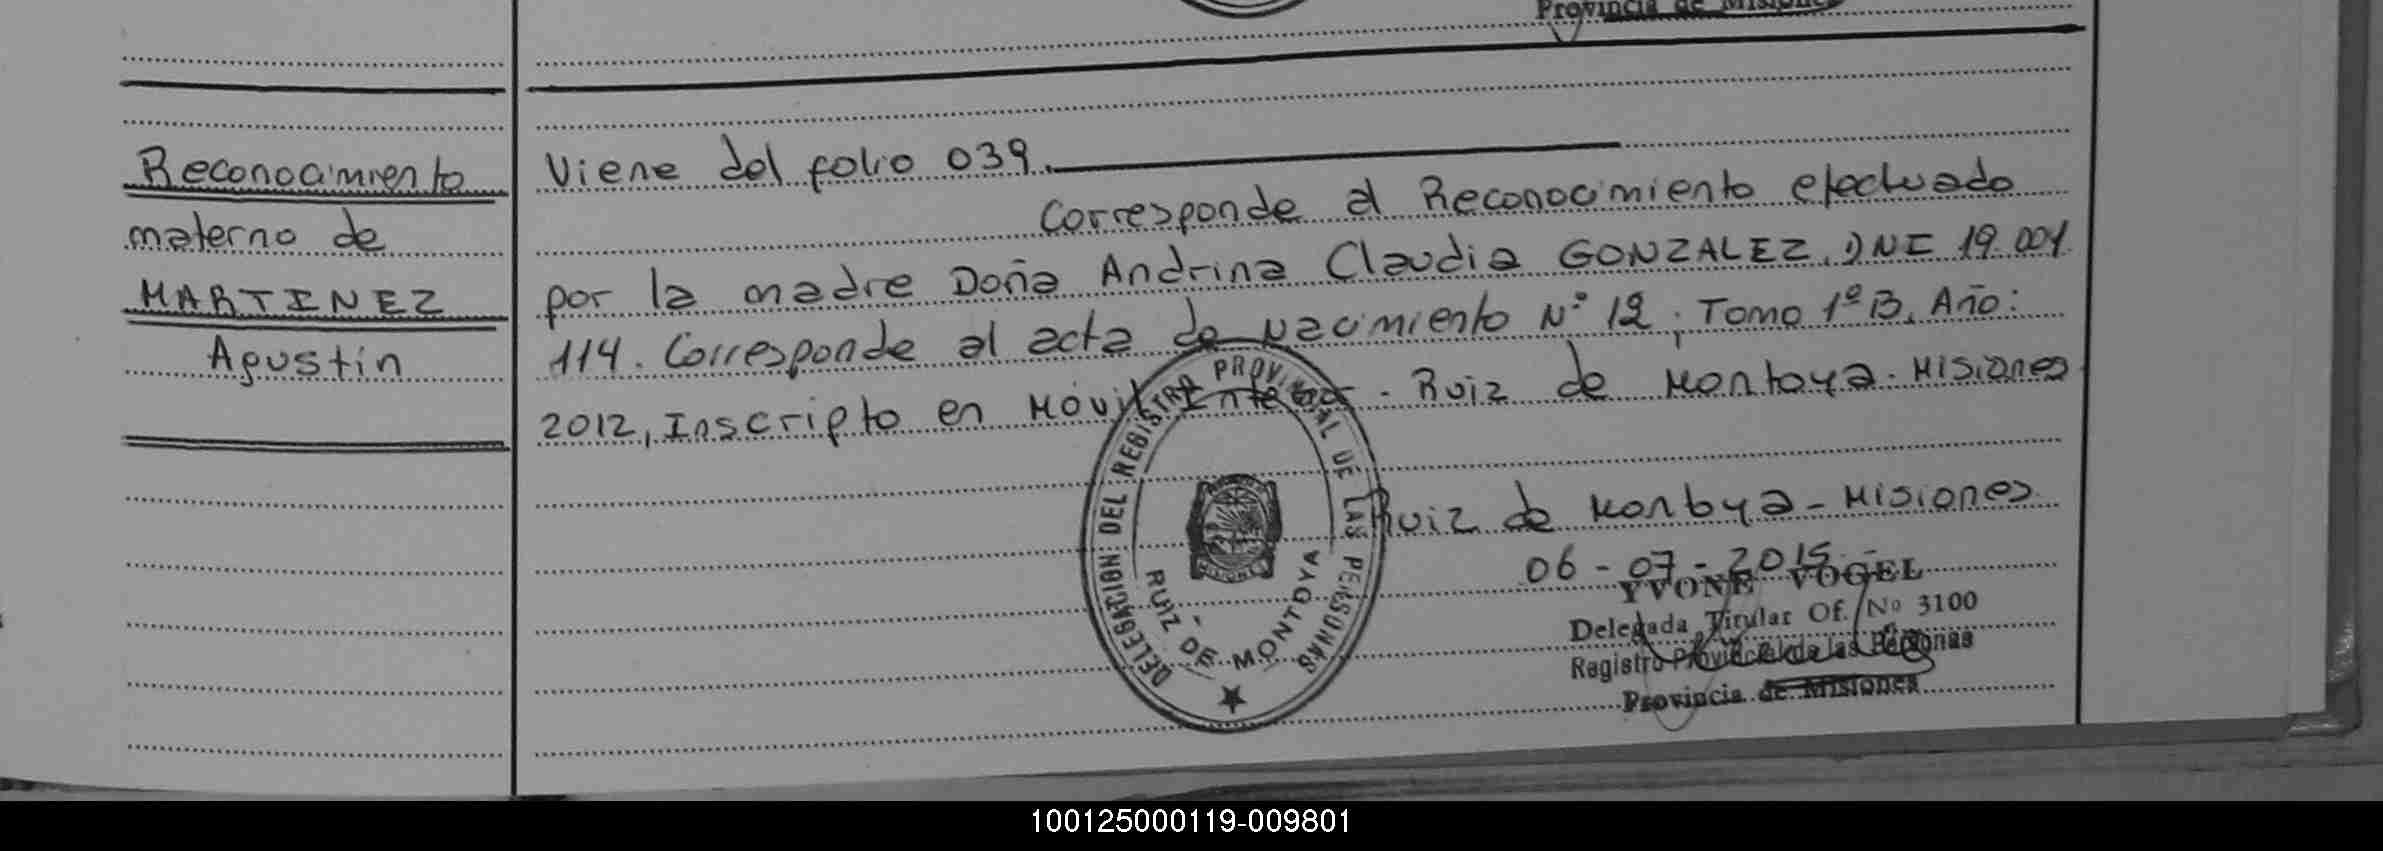 Provincia de Misiones
Reconocimiento
materno de
MARTINEZ
Agustin
Viene del folio 039.
Corresponde al Reconocimiento efectuado
por la madre Doña Andrina Claudia GONZALEZ, DNI 19.001.
114. Corresponde al acta de Nacimiento N° 12, Tomo 1º B, Año:
2012, Inscripto en Móvil - Ruiz de Montoya. Misiones
Ruiz de Montoya - Misiones
06-07-2015
YVONE VOGEL
Delegada Titular Of. No 3100
Registro Provincial de las Personas
Provincia de Misiones
DELEGACION DEL REGISTRO PROVINCIAL DE LAS PERSONAS
RUIZ DE MONTOYA
MISIONES
100125000119-009801